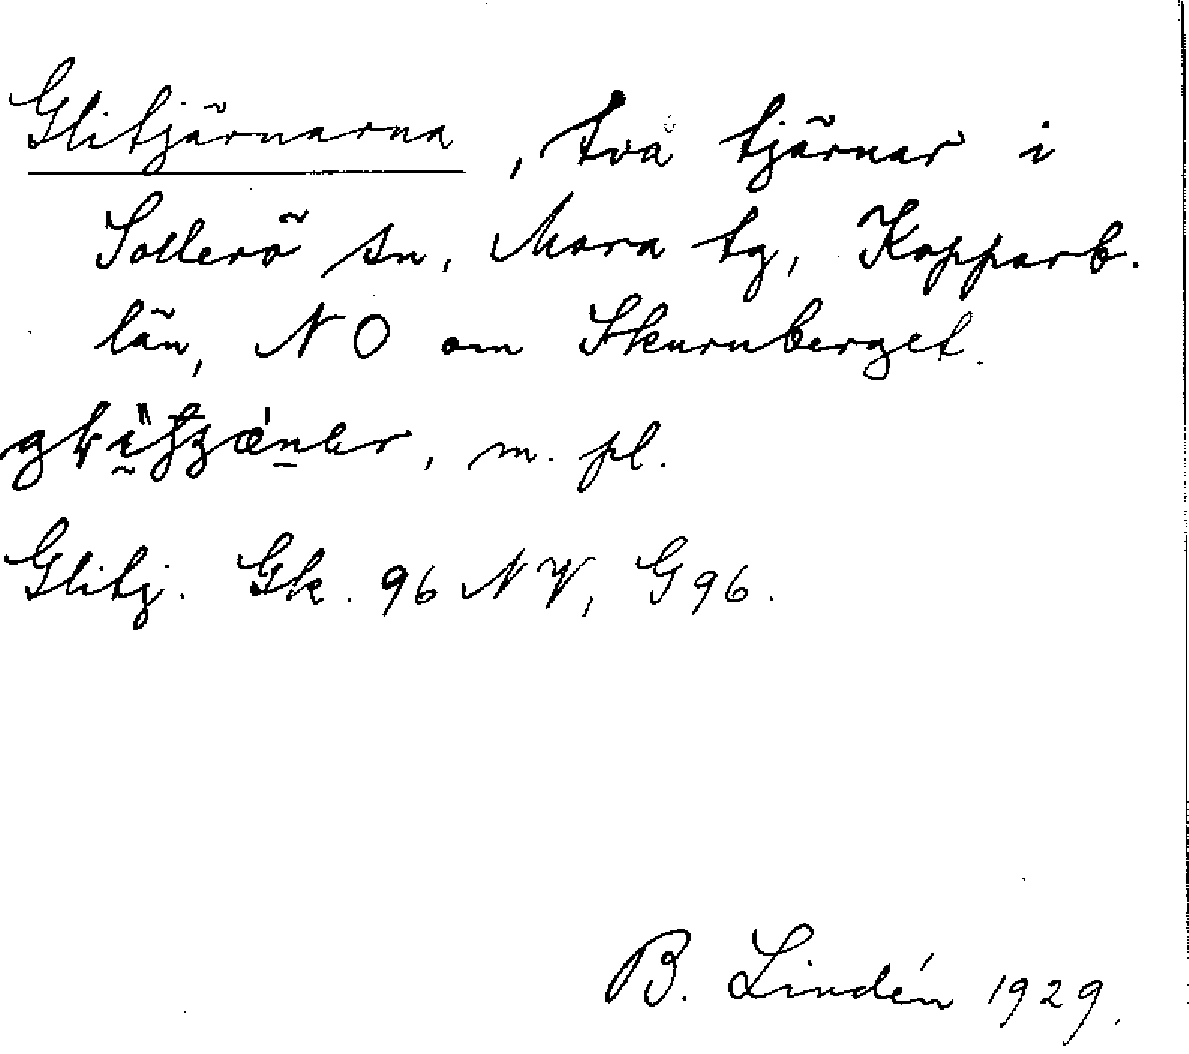 Glitjärnarna, två tjärnar i
Sollerö sn, Mora tg, Kopparb.
län, NO om Skurnberget.
m. pl.
Glitj. Gk. 96 NV, G 96.
B. Lindén 1929.